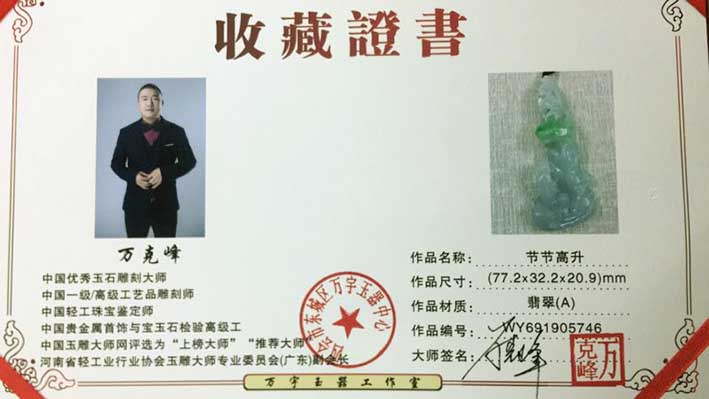 收藏證書
万克峰
中国优秀玉石雕刻大师
中国一级/高级工艺品雕刻师
中国轻工珠宝鉴定师
中国贵金属首饰与宝玉石检验高级工
中国玉雕大师网评选为“上榜大师”“推荐大师”
河南省轻工业行业协会玉雕大师专业委员会(广东)副会长
市东城区万字玉器中心
作品名称: 节节高升
作品尺寸: (77.2x32.2x20.9)mm
作品材质: 翡翠(A)
作品编号: WY691905746
大师签名: 万克峰
万克峰
万字玉器工作室